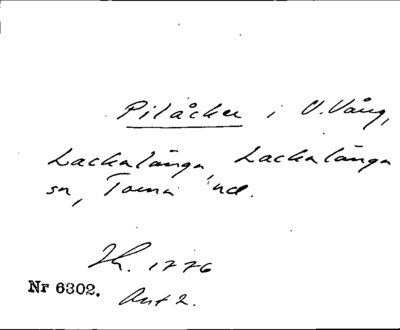 Pilåcker i V. Vång,
Lackalänga, Lackalänga
sn, Torna hd.
1776
Nr 6302. Akt 2.